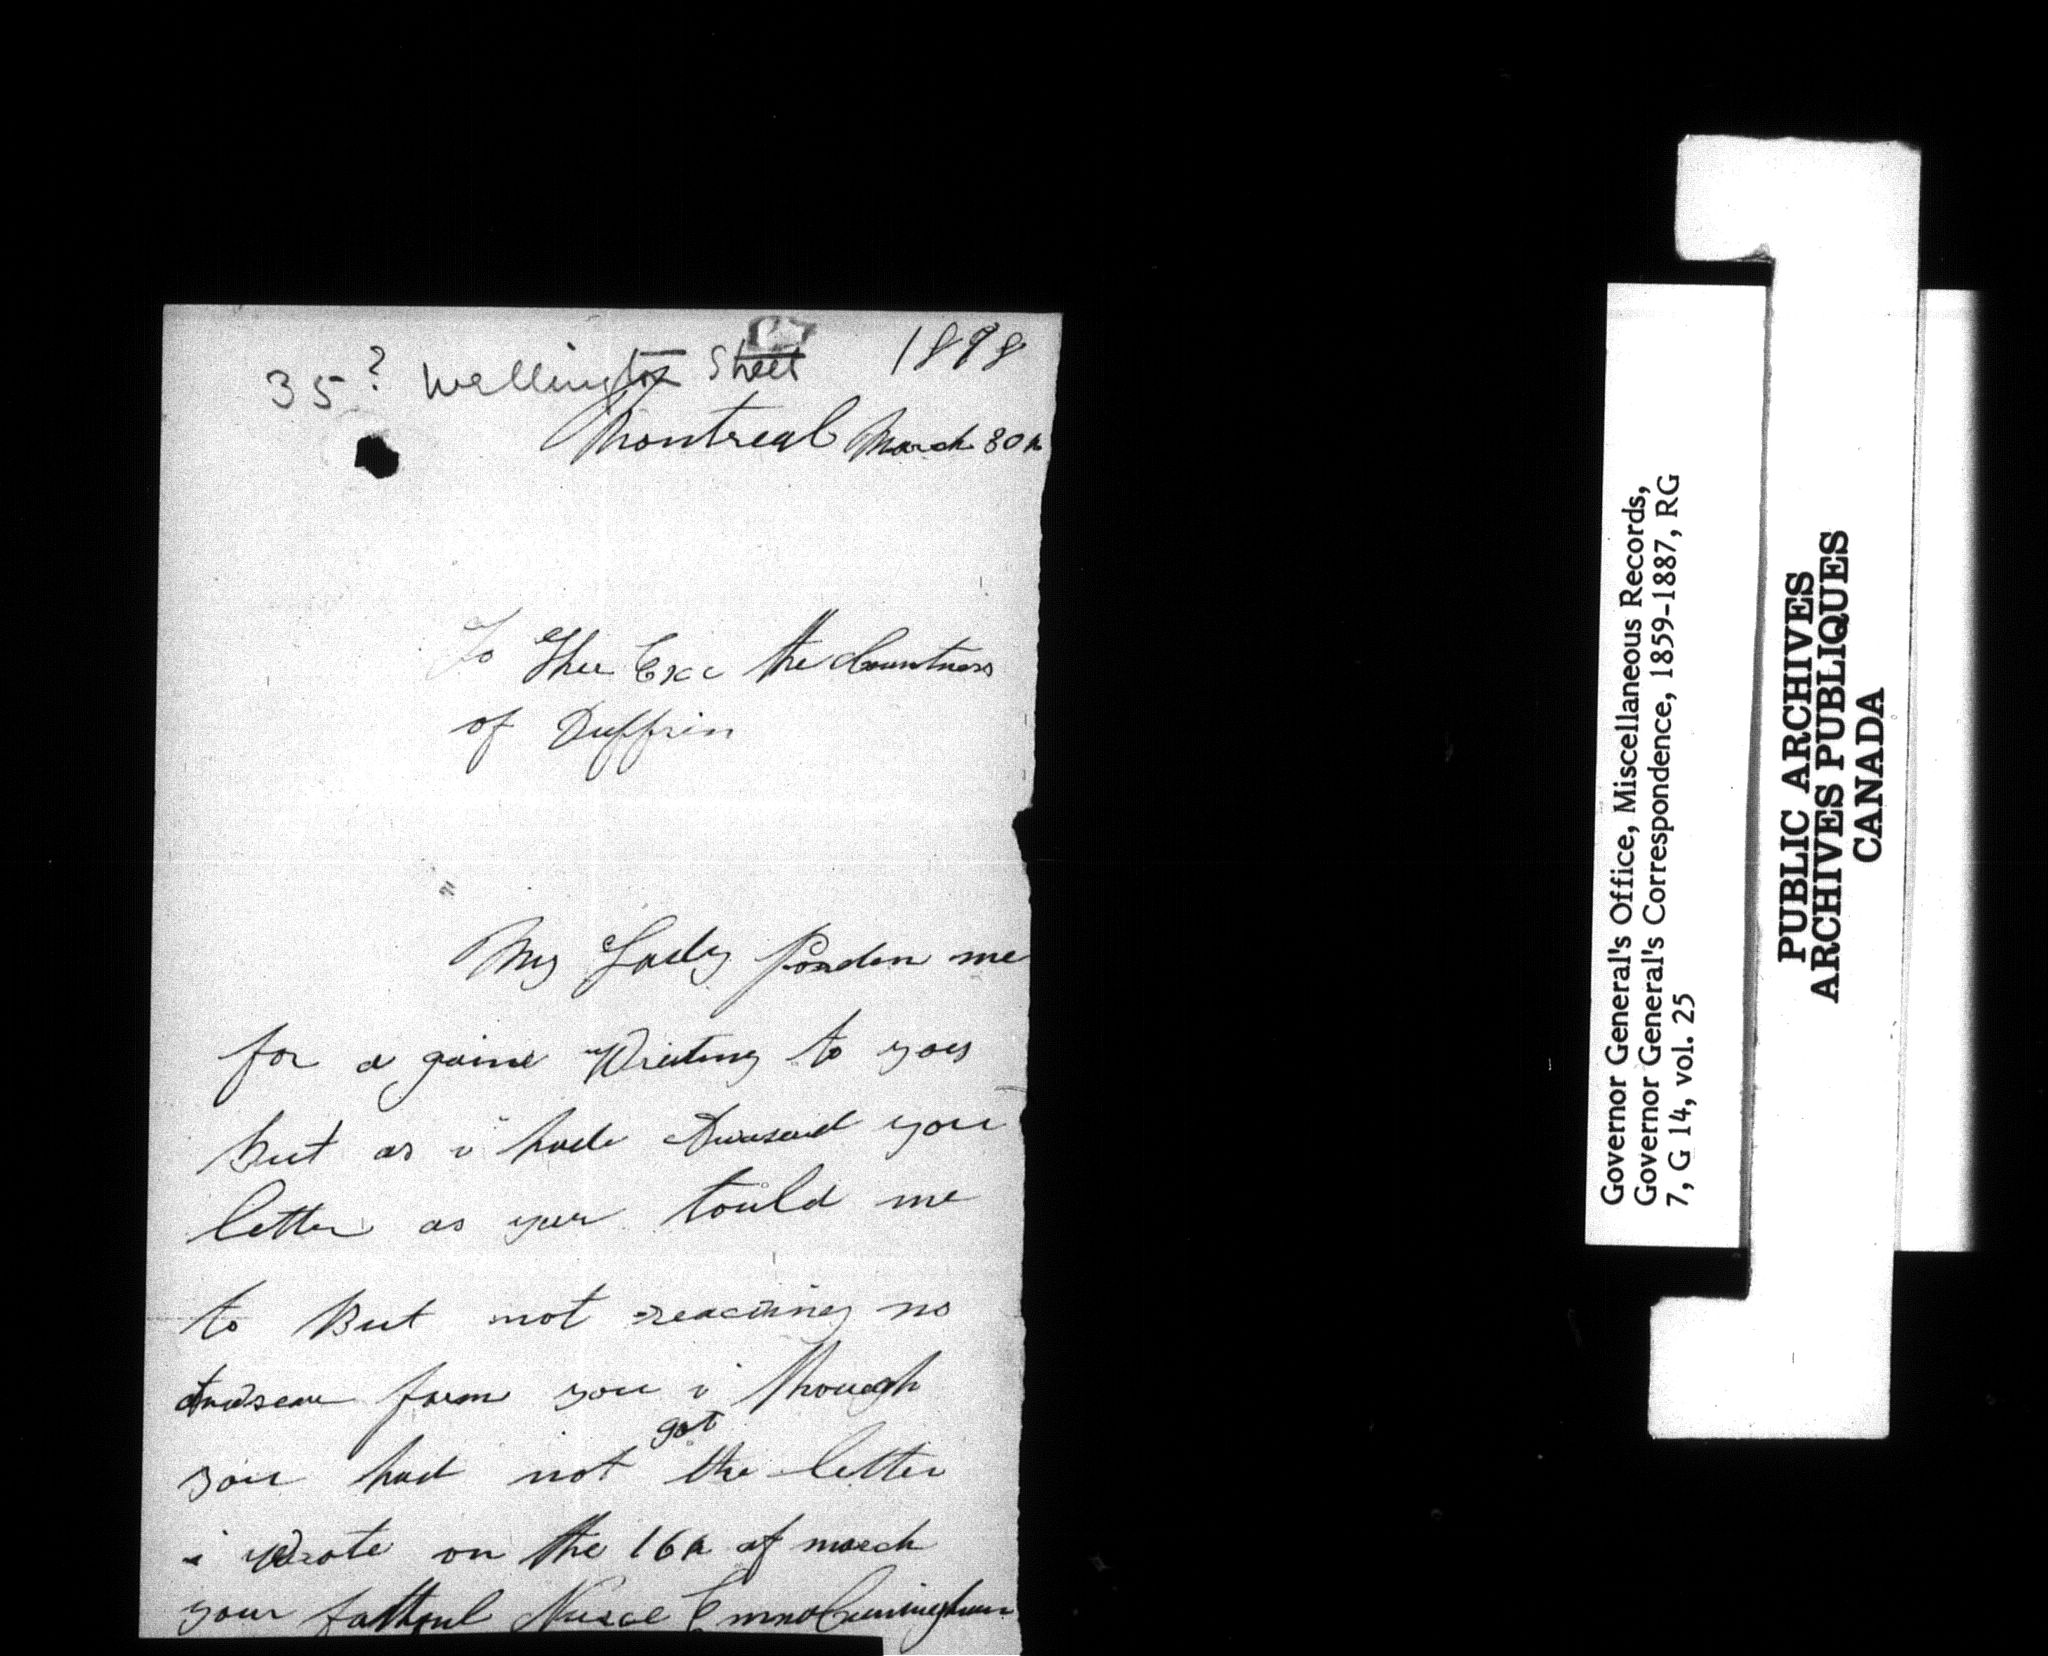 35? Wellington Street 1898
Montreal March 30h
To Ther Exc the Countness
of Duffrin
My Lady Pardon me
for a gaine Writing to you
But as i hade Awnserd you
letter as your tould me
to But not reaciving no
Awnsear form you i though
got
you had not the letter
i Wrote on the 16h of march
your fathful Nurse Emma Cunningham
Governor General's Office, Miscellaneous Records,
Governor General's Correspondence, 1859-1887, RG
7, G 14, vol. 25
PUBLIC ARCHIVES
ARCHIVES PUBLIQUES
CANADA